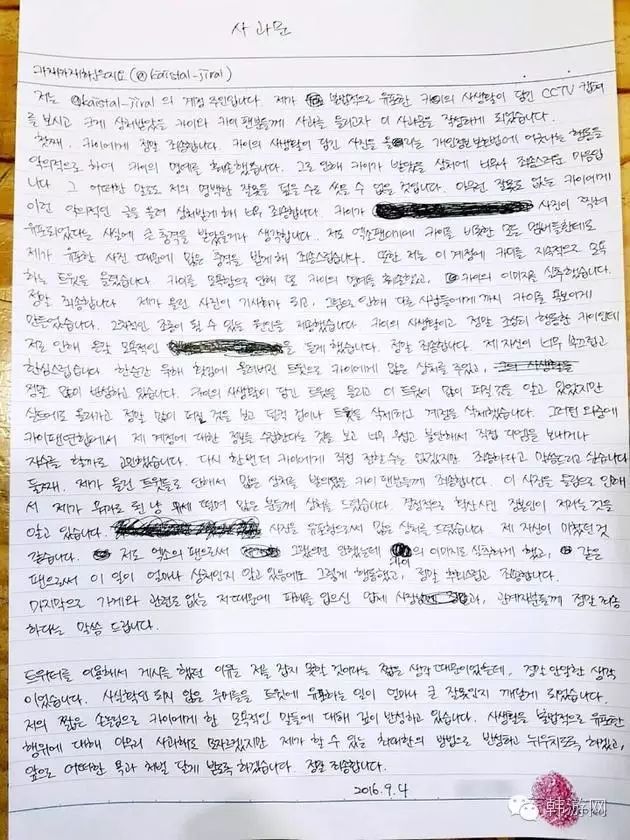 사 과 문
카재가재하는지요 (@kaistal_jiral)
저는 @kaistal_jiral 의 계정 주인입니다. 제가 불법적으로 유포한 카이의 사생활이 담긴 CCTV 캡쳐
를 보시고 크게 상처받았을 카이와 카이 팬분들께 사과를 드리고자 이 사과문을 작성하게 되었습니다.
첫째. 카이에게 정말 죄송합니다. 카이의 사생활이 담긴 사진을 올리는 개인정보보호법에 어긋나는 행동을
악의적으로 하여 카이의 명예를 훼손했습니다. 그로 인해 카이가 받았을 상처에 너무나 죄송스러운 마음입
니다. 그 어떠한 말로도 저의 명백한 잘못을 덮을 수도 씻을 수 없을 것입니다. 아무런 잘못도 없는 카이에게
이런 악의적인 글을 올려 상처받게 해 너무 죄송합니다. 카이가 사진이 찍혀
유포되었다는 사실에 큰 충격을 받았을거라 생각합니다. 저도 엑소팬이기에 카이를 비롯한 모든 멤버들한테도
제가 유포한 사진 때문에 많은 충격을 받게 해 죄송스럽습니다. 또한 저는 이 계정에 카이를 지속적으로 모욕
하는 트윗을 올렸습니다. 카이를 모욕함으로 인해 또 카이의 명예를 훼손했고, 카이의 이미지를 실추했습니다.
정말 죄송합니다. 제가 올린 사진이 기사화가 되고, 그럼으로 인해 다른 사람들에게까지 카이를 욕보이게
만들었습니다. 그차적인 조롱이 될 수 있는 원인을 제공했습니다. 카이의 사생활이고 정말 조심히 행동한 카이인데
저로 인해 온갖 모욕적인 을 듣게 했습니다. 정말 죄송합니다. 제 자신이 너무 부끄럽고
한심스럽습니다. 한순간 욱해 홧김에 올려버린 트윗으로 카이에게 많은 상처를 주었고,
정말 많이 반성하고 있습니다. 카이의 사생활이 담긴 트윗을 올리고 이 트윗이 많이 퍼질 것을 알고 있었지만
실트에도 올라가고 정말 많이 퍼진 것을 보고 덜컥 겁이나 트윗을 삭제하고 계정을 삭제했습니다. 그러던 와중에
카이팬연합에서 제 계정에 대한 정보를 수집한다는 것을 보고 너무 무섭고 불안해서 직접 디엠을 보내거나
자수를 할까도 고민했습니다. 다시 한번 더 카이에게 직접 전할 수는 없겠지만 죄송하다고 말씀드리고 싶습니다
둘째. 제가 올린 트윗으로 인해서 많은 상처를 받으셨을 카이 팬분들께 죄송합니다. 이 사진을 올림으로 인해
서 제가 뭐라도 된 냥 유세 떨며 많은 분들께 상처를 드렸습니다. 결정적으로 확산시킨 장본인이 저라는 것을
알고 있습니다. 사진을 유포함으로써 많은 상처를 드렸습니다. 제 자신이 미쳤던 것
같습니다. 저도 엑소의 팬으로써 그랬으면 안됐는데 카이의 이미지도 실추하게 했고, 같은
팬으로써 이 일이 얼마나 상처인지 알고 있음에도 그렇게 행동했고, 정말 후회스럽고 죄송합니다.
마지막으로 가게와 관련도 없는 저 때문에 피해를 입으신 업체 사장님과, 관계자분들께 정말 죄송
하다는 말씀 드립니다.
트위터를 이용해서 게시를 했던 이유는 저를 잡지 못할 것이라는 짧은 생각 때문이었는데, 정말 안일한 생각
이었습니다. 사실확인 되지 않은 루머들을 트윗에 유포하는 일이 얼마나 큰 잘못인지 깨닫게 되었습니다.
저의 짧은 손놀림으로 카이에게 한 모욕적인 말들에 대해 깊이 반성하고 있습니다. 사생활을 불법적으로 유포한
행위에 대해 아무리 사과해도 모자르겠지만 제가 할 수 있는 최대한의 방법으로 반성하고 뉘우치도록 하겠고,
앞으로 어떠한 욕과 처벌 달게 받도록 하겠습니다. 정말 죄송합니다.
2016.9.4
韩游网